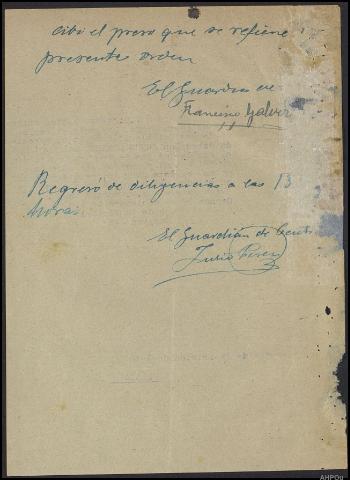 cibí el preso que se refiere
presente orden
El Guardia de
Francisco Galvez
Regresó de diligencias a las 13
horas
El Guardián de
Julio Perez
AHPOu